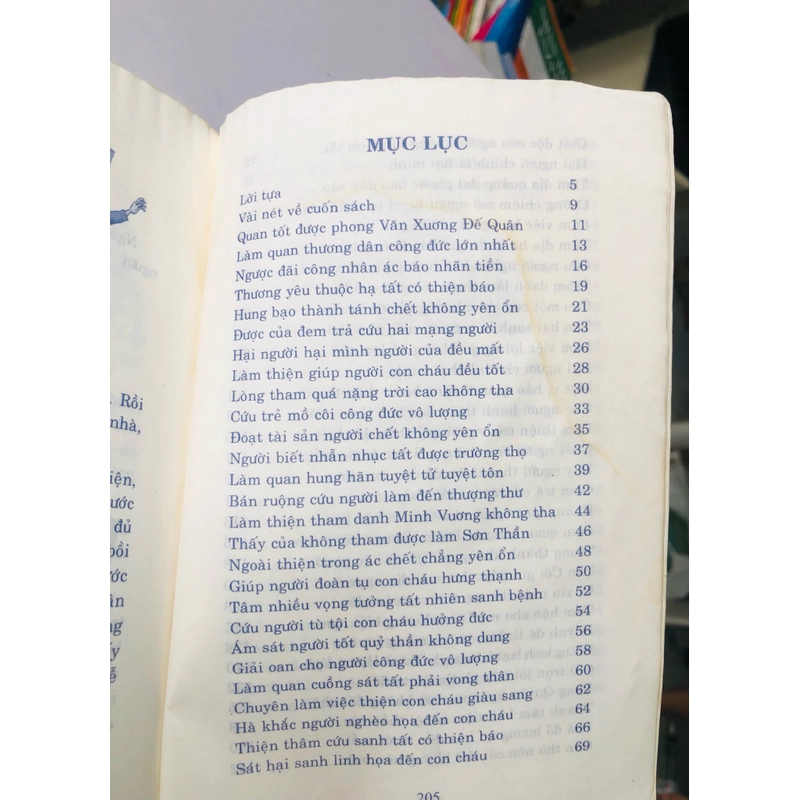 MỤC LỤC
Lời tựa 5
Vài nét về cuốn sách 9
Quan tốt được phong Văn Xương Đế Quân 11
Làm quan thương dân công đức lớn nhất 13
Ngược đãi công nhân ác báo nhãn tiền 16
Thương yêu thuộc hạ tất có thiện báo 19
Hung bạo thành tánh chết không yên ổn 21
Được của đem trả cứu hai mạng người 23
Hại người hại mình người của đều mất 26
Làm thiện giúp người con cháu đều tốt 28
Lòng tham quá nặng trời cao không tha 30
Cứu trẻ mồ côi công đức vô lượng 33
Đoạt tài sản người chết không yên ổn 35
Người biết nhẫn nhục tất được trường thọ 37
Làm quan hung hãn tuyệt tử tuyệt tôn 39
Bán ruộng cứu người làm đến thượng thư 42
Làm thiện tham danh Minh Vương không tha 44
Thấy của không tham được làm Sơn Thần 46
Ngoài thiện trong ác chết chẳng yên ổn 48
Giúp người đoàn tụ con cháu hưng thạnh 50
Tâm nhiều vọng tưởng tất nhiên sanh bệnh 52
Cứu người tù tội con cháu hưởng đức 54
Ám sát người tốt quỷ thần không dung 56
Giải oan cho người công đức vô lượng 58
Làm quan cuồng sát tất phải vong thân 60
Chuyên làm việc thiện con cháu giàu sang 62
Hà khắc người nghèo họa đến con cháu 64
Thiện thâm cứu sanh tất có thiện báo 66
Sát hại sanh linh họa đến con cháu 69
205
Rồi
nhà,
ước
đủ